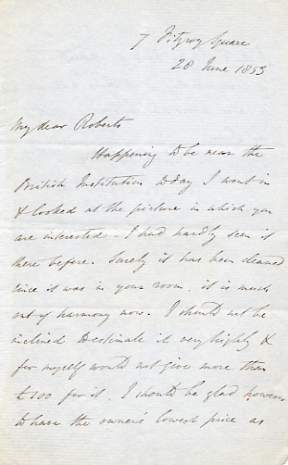 7 Fitzroy Square
28 June 1853
My dear Roberts
Happening to be near the
British Institution today I went in
& looked at the picture in which you
are interested. I had hardly seen it
there before. Surely it has been cleaned
since it was in your room, it is much
out of harmony now. I should not be
inclined to estimate it very highly &
for myself would not give more than
£100 for it. I should be glad however
to have the owner's lowest price as